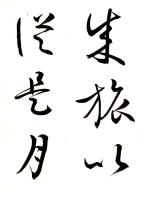 旅以
從是月